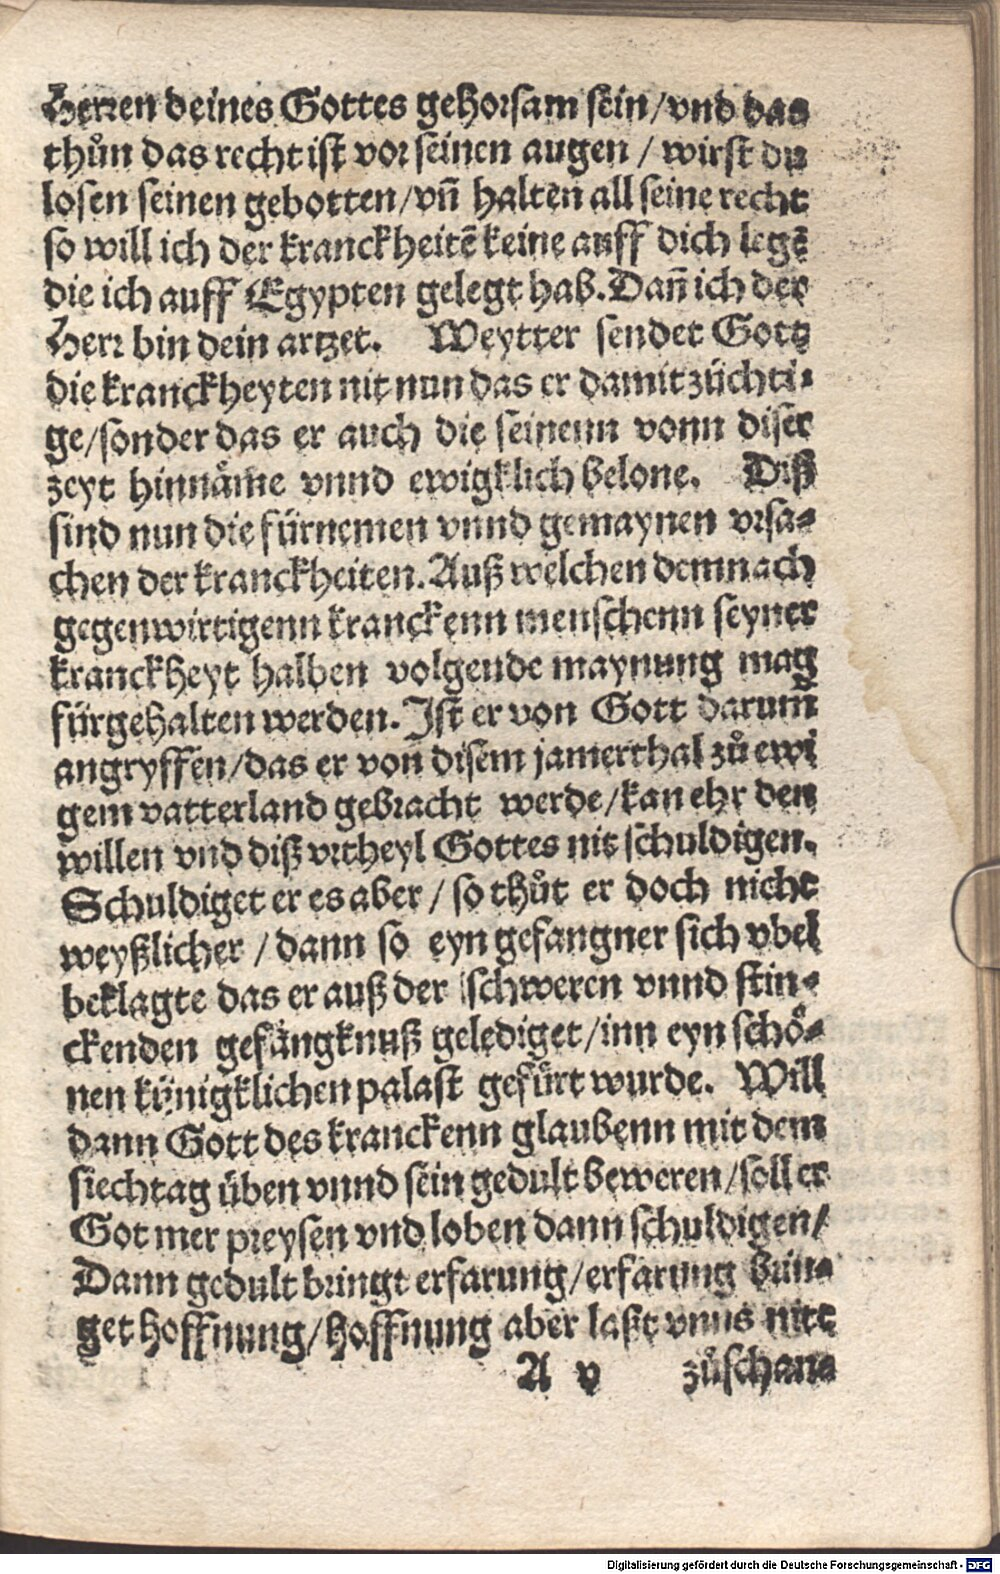 Herren deines Gottes gehorsam sein/vnd das
thůn das recht ist vor seinen augen / wirst du
losen seinen gebotten/vñ halten all seine recht
so will ich der kranckheitẽ keine auff dich legẽ
die ich auff Egypten gelegt hab. Dañ ich der
Herr bin dein artzet. Weytter sendet Gott
die kranckheyten nit nun das er damit züchti-
ge/sonder das er auch die seinenn vonn diser
zeyt hinnäme vnnd ewigklich belone. Diß
sind nun die fürnemen vnnd gemaynen vrsa-
chen der kranckheiten. Auß welchen demnach
gegenwirtigenn kranckenn menschenn seyner
kranckheyt halben volgende maynung mag
fürgehalten werden. Ist er von Gott darum̃
angryffen/das er von disem jamerthal zů ewi
gem vatterland gebracht werde/kan ehr den
willen vnd diß vrtheyl Gottes nit schuldigen.
Schuldiget er es aber / so thůt er doch nicht
weyßlicher / dann so eyn gefangner sich vbel
beklagte das er auß der schweren vnnd stin-
ckenden gefängknuß gelediget/inn eyn schö-
nen künigklichen palast gefürt wurde. Will
dann Gott des kranckenn glaubenn mit dem
siechtag üben vnnd sein gedult beweren/soll er
Got mer preysen vnd loben dann schuldigen/
Dann gedult bringt erfarung/erfarung brin-
get hoffnung/hoffnung aber laßt vnns nitt
A v zůschan-
Digitalisierung gefördert durch die Deutsche Forschungsgemeinschaft - DFG